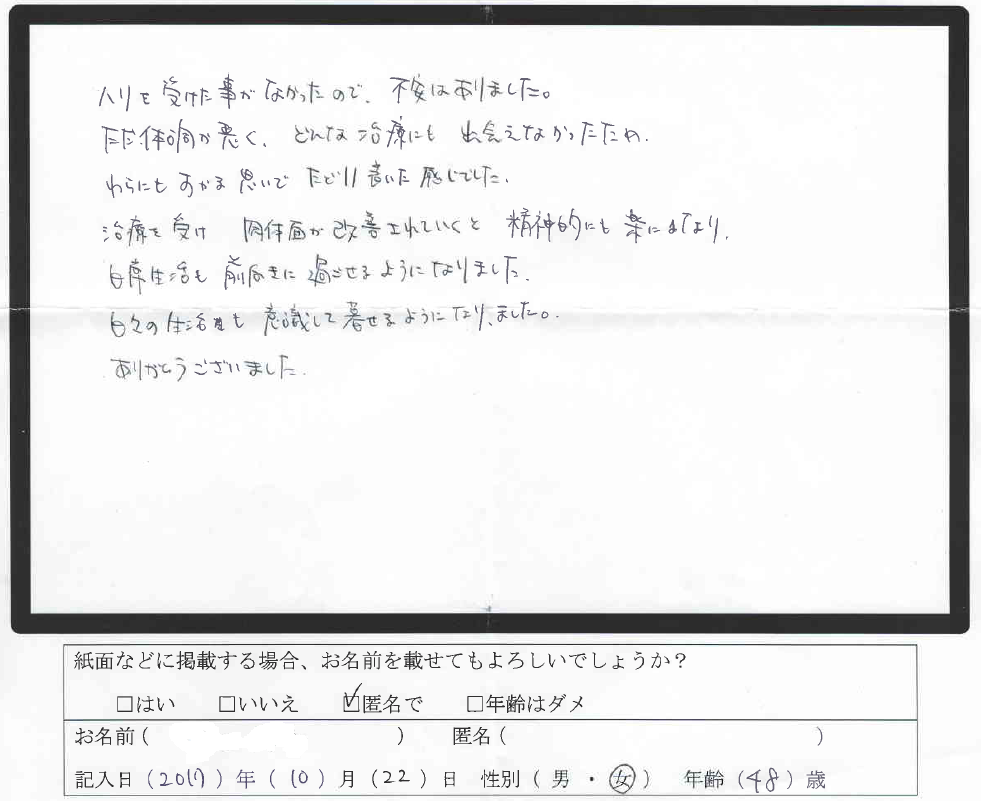 ハリを受けた事がなかったので、不安はありました。
ただ、体調が悪く、どんな治療にも出会えなかったため、
わらにもすがる思いでたどり着いた感じでした。
治療を受け 肉体面が改善されていくと 精神的にも楽になり、
日常生活も前向きに過ごせるようになりました。
日々の生活も意識して暮せるようになりました。
ありがとうございました。
紙面などに掲載する場合、お名前を載せてもよろしいでしょうか?
□はい □いいえ ☑匿名で □年齢はダメ
お名前( ) 匿名( )
記入日(2017)年(10)月(22)日 性別(男・女) 年齢(48)歳